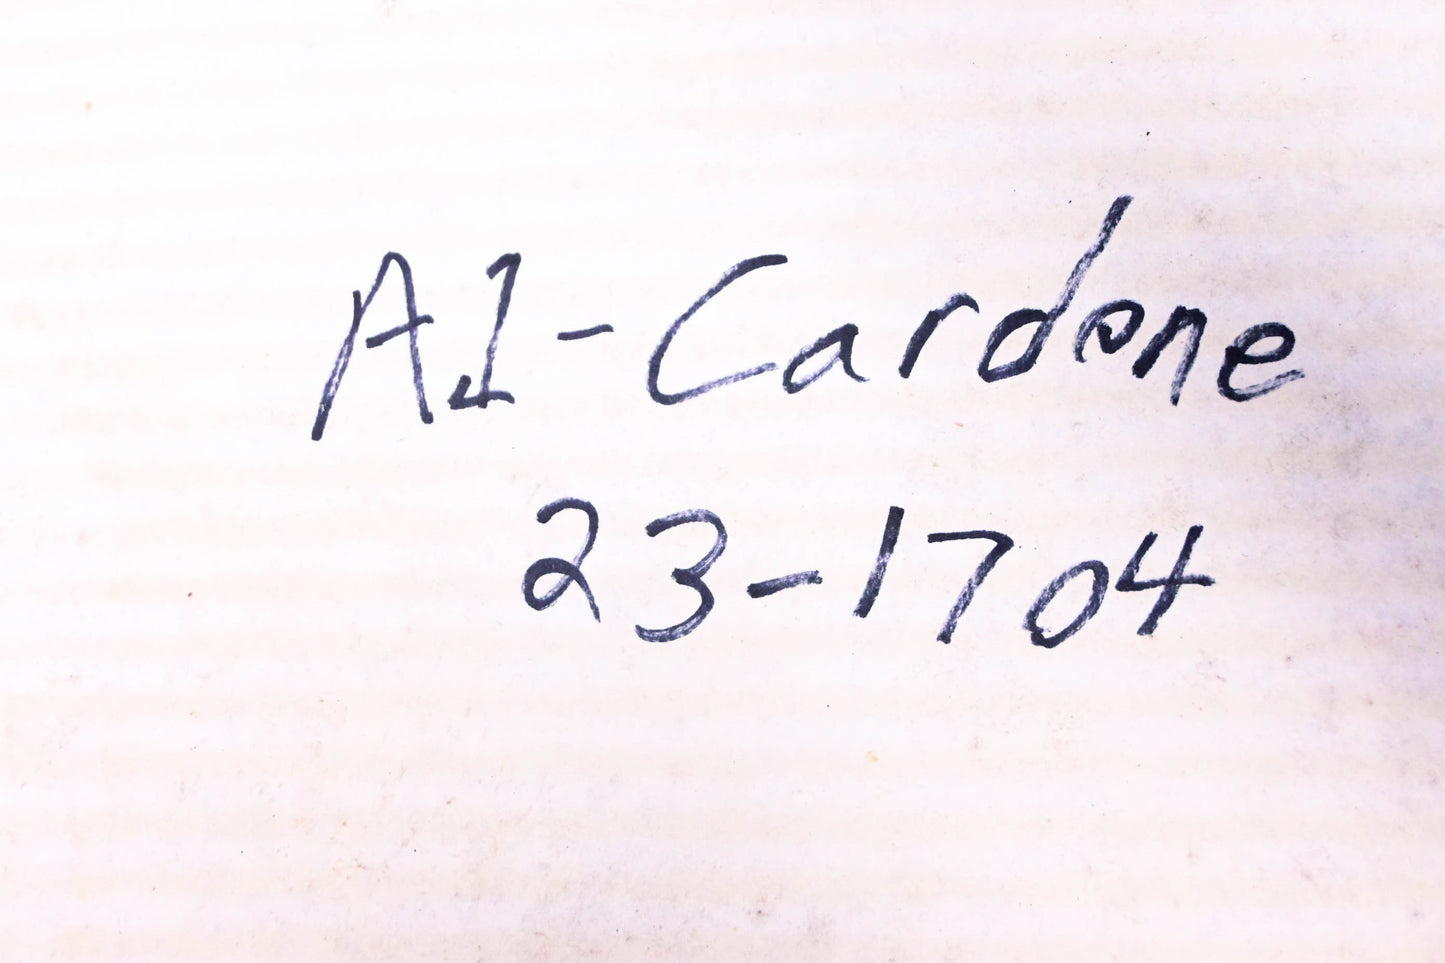 A1-Cardone
23-1704